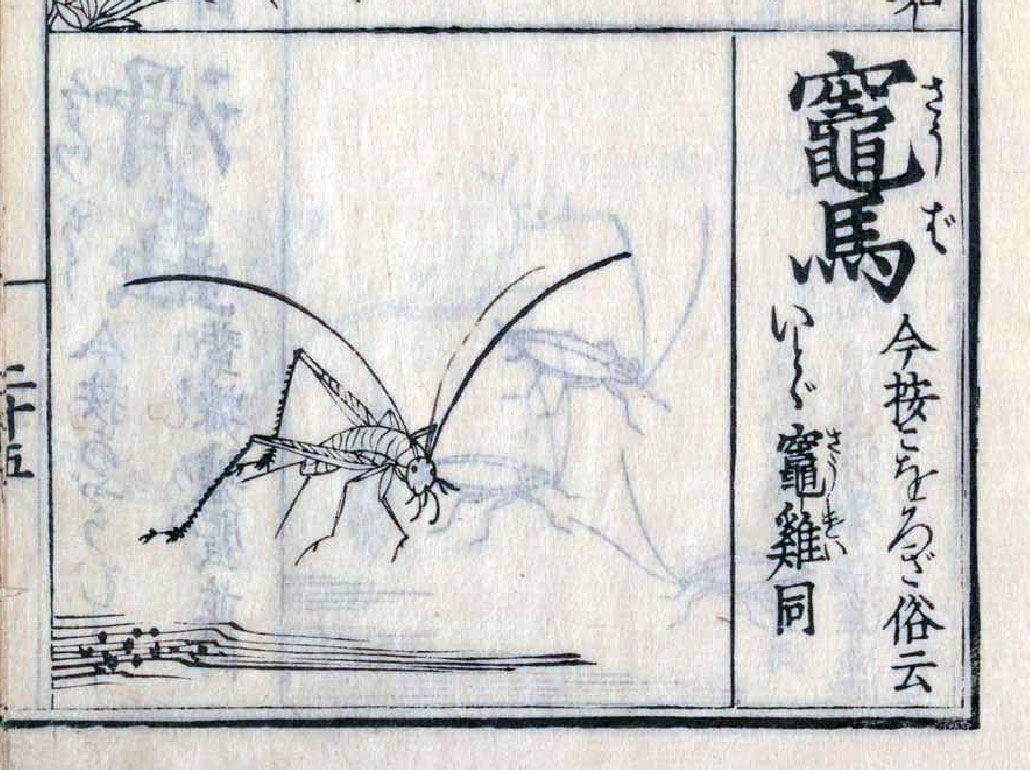 竈馬
さうば
今按こをろぎ俗云
いとゞ竈雞同
さうけい
二十五